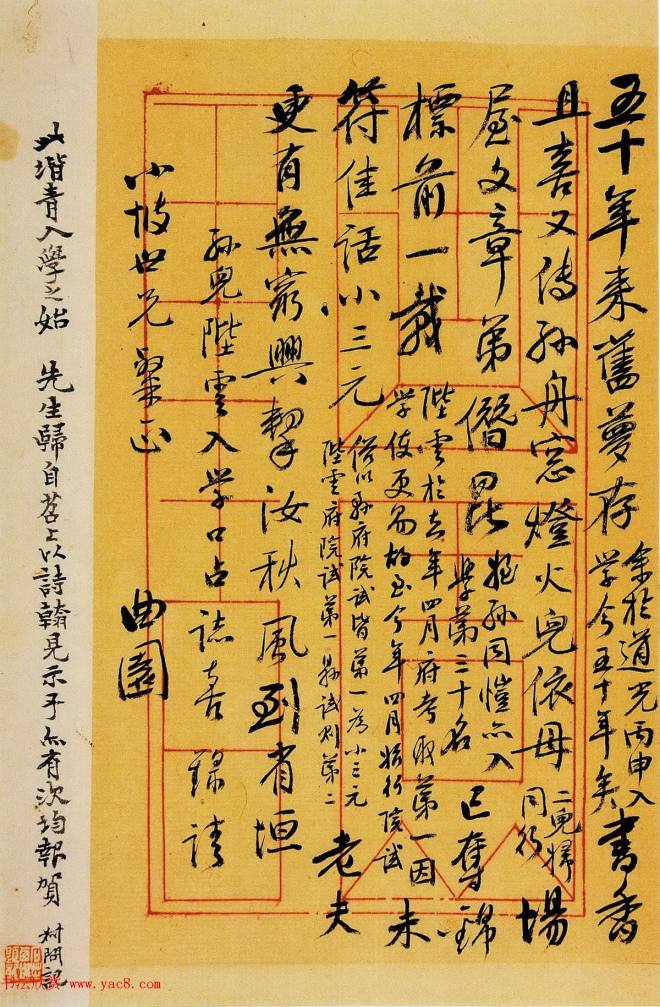 五十年来舊夢存余於道光丙申入学今五十年矣書香
且喜又傳孫舟窓燈火兒依母二兒婦同行場
屋文章弟僭昆姪孫同愷亦入學第三十名已奪錦
標前一載陛雲於去年四月府考取第一因学使更易故至今年四月始行院試未
符佳話小三元俗以縣府院試皆第一為小三元陛雲府院試第一縣試則第二老夫
更有無窮興挈汝秋風到省垣
孫兒陛雲入学口占誌喜錄請
小坡世兄粲正
曲園
此階青入學之始 先生歸自苕上以詩翰見示予亦有次均報賀 記
书法欣赏 www.yac8.com